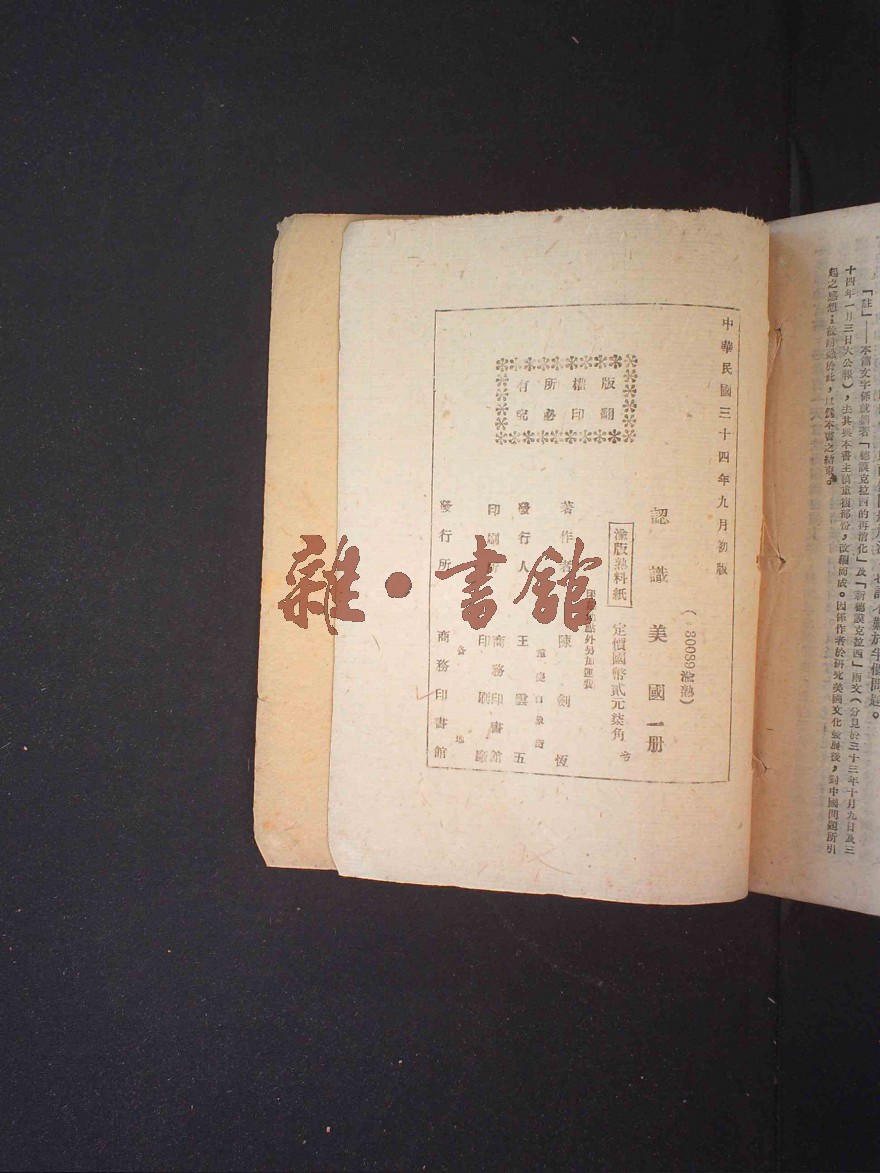 起之感想；故附錄於此，以爲本書之結束。
十四年一月三日大公報），去其與本書主旨重複部份，改編而成。因係作者於研究美國文化發展後，對中國問題所引
「註」——本篇文字係就舊著「德謨克拉西的再消化」及「新德謨克拉西」兩文（分見於三十三年十月九日及三
中華民國三十四年九月初版
（80089渝熟）
認識美國一册
渝版熟料紙
定價國幣貳元柒角
印刷地點外另加運費
著作者 陳劍恆
重慶白象街
發行人 王雲五
印刷所 商務印書館
印刷廠
各地
發行所 商務印書館
版權所有
翻印必究
雜·書館